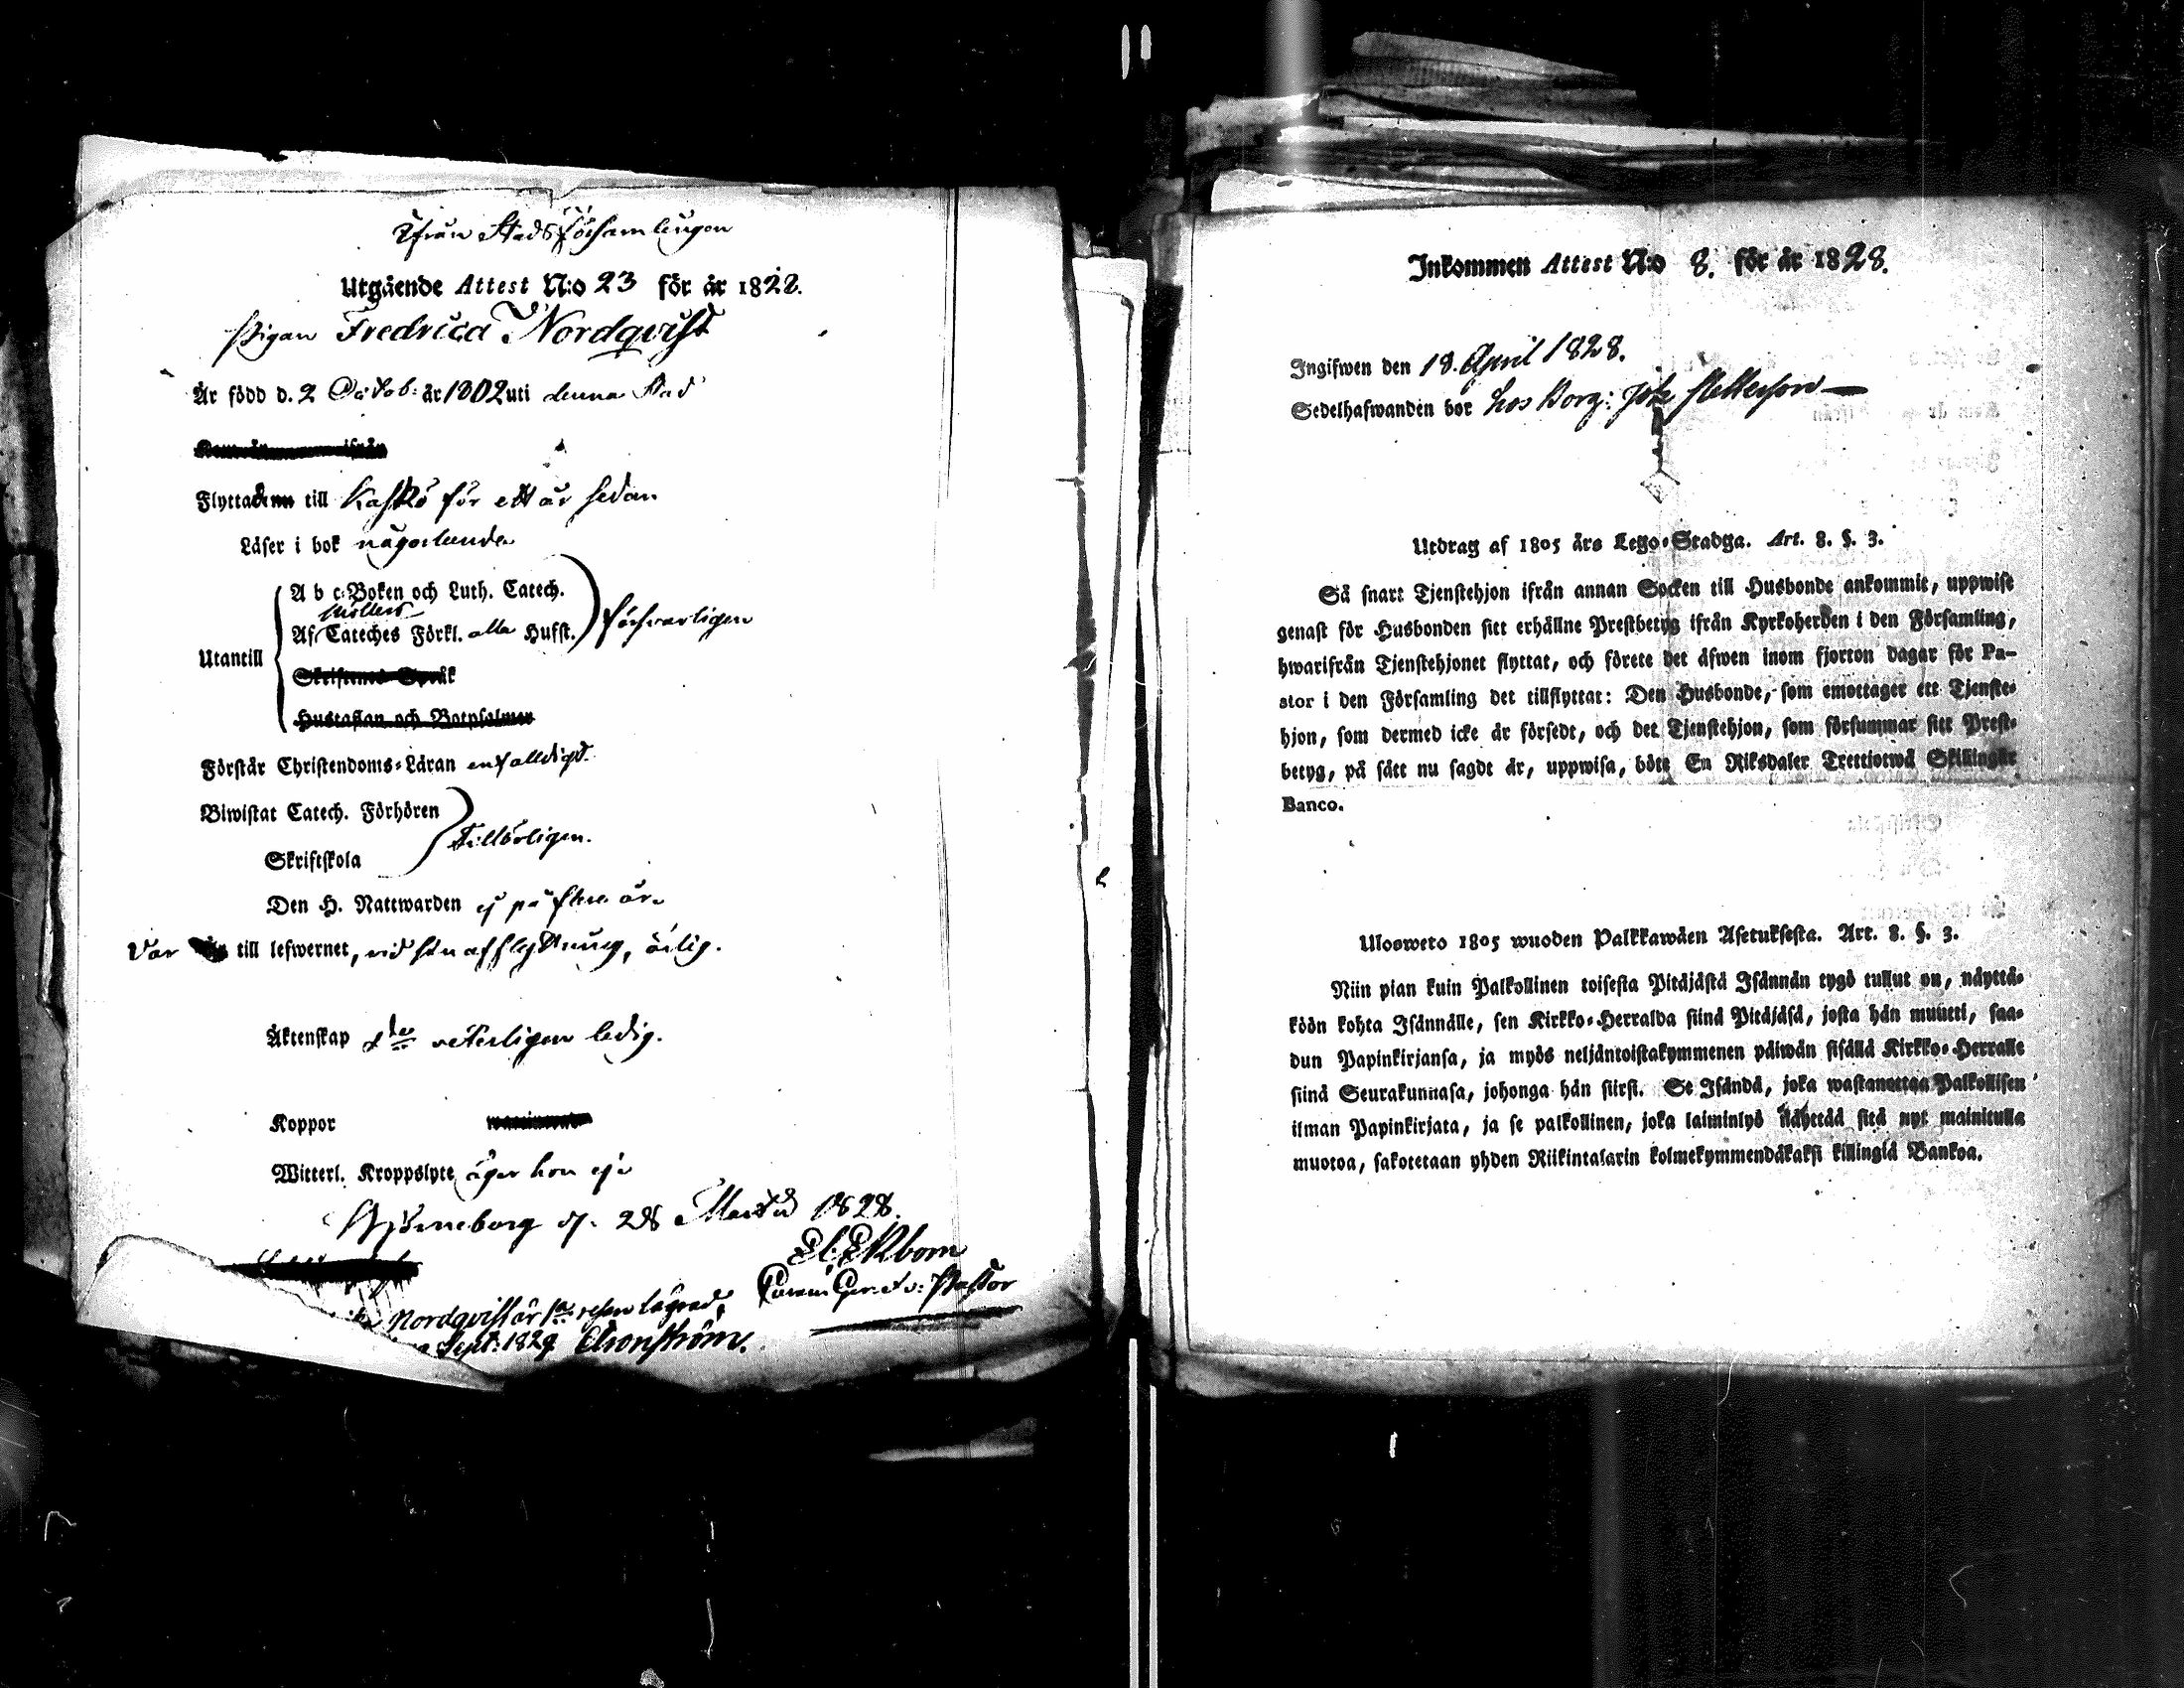 Ifrån Stads Församlingen
Utgående Attest N:o 23 för år 1828.
Pigan Fredrica Nordqvist
Är född d. 2 Octob: år 1802 uti denna Stad
Flyttade till Kaskö för ett år sedan
Läser i bok någorlunda
A b c-Boken och Luth. Catech.
Möllers
Af Cateches Förkl. alla Hufst. försvarligen
Utantill
Skriftenes Språk
Hustaflan och Botpsalmer
Förstår Christendoms-Läran enfaldigt.
Biwistat Catech. Förhören
Tillbörligen.
Skriftskola
Den H. Nattwarden ej på flere år
Var till lefwernet, vid sin afflyttning, ärlig.
Äktenskap veterligen ledig.
Koppor
Witterl. Kroppslyte äger hon ej
Björneborg d. 28 Martii 1828.
El. Ekbom
Pastor
Nordqvist är
Sept: 1829
Inkommen Attest N:o 8. för år 1828.
Ingifwen den 18. April 1828.
Sedelhafwanden bor hos Borg: Joh Petterson
Utdrag af 1805 års Lego-Stadga. Art. 8. §. 3.
Så snart Tjenstehjon ifrån annan Socken till Husbonde ankommit, uppwise
genast för Husbonden sitt erhållne Prestbetyg ifrån Kyrkoherden i den Församling,
hwarifrån Tjenstehjonet flyttat, och förete det äfwen inom fjorton dagar för Pa-
stor i den Församling det tillflyttat: Den Husbonde, som emottager ett Tjenste-
hjon, som dermed icke är försedt, och det Tjenstehjon, som försummar sitt Prest-
betyg, på sätt nu sagdt är, uppwisa, böte En Riksdaler Trettiotwå Skillingar
Banco.
Ulosweto 1805 wuoden Palkkawäen Asetuksesta. Art. 8. §. 3.
Niin pian kuin Palkollinen toisesta Pitäjästä Isännän tygö tullut on, näyttä-
köön kohta Isännälle, sen Kirkko-Herralda siinä Pitäjäsä, josta hän muutti, saa-
dun Papinkirjansa, ja myös neljäntoistakymmenen päiwän sisällä Kirkko-Herralle
siinä Seurakunnasa, johonga hän siirsi. Se Isändä, joka wastanottaa Palkollisen
ilman Papinkirjata, ja se palkollinen, joka laiminlyö näyttää sitä nyt mainitulla
muotoa, sakotetaan yhden Riikintalarin kolmekymmendäkaksi killingiä Bankoa.